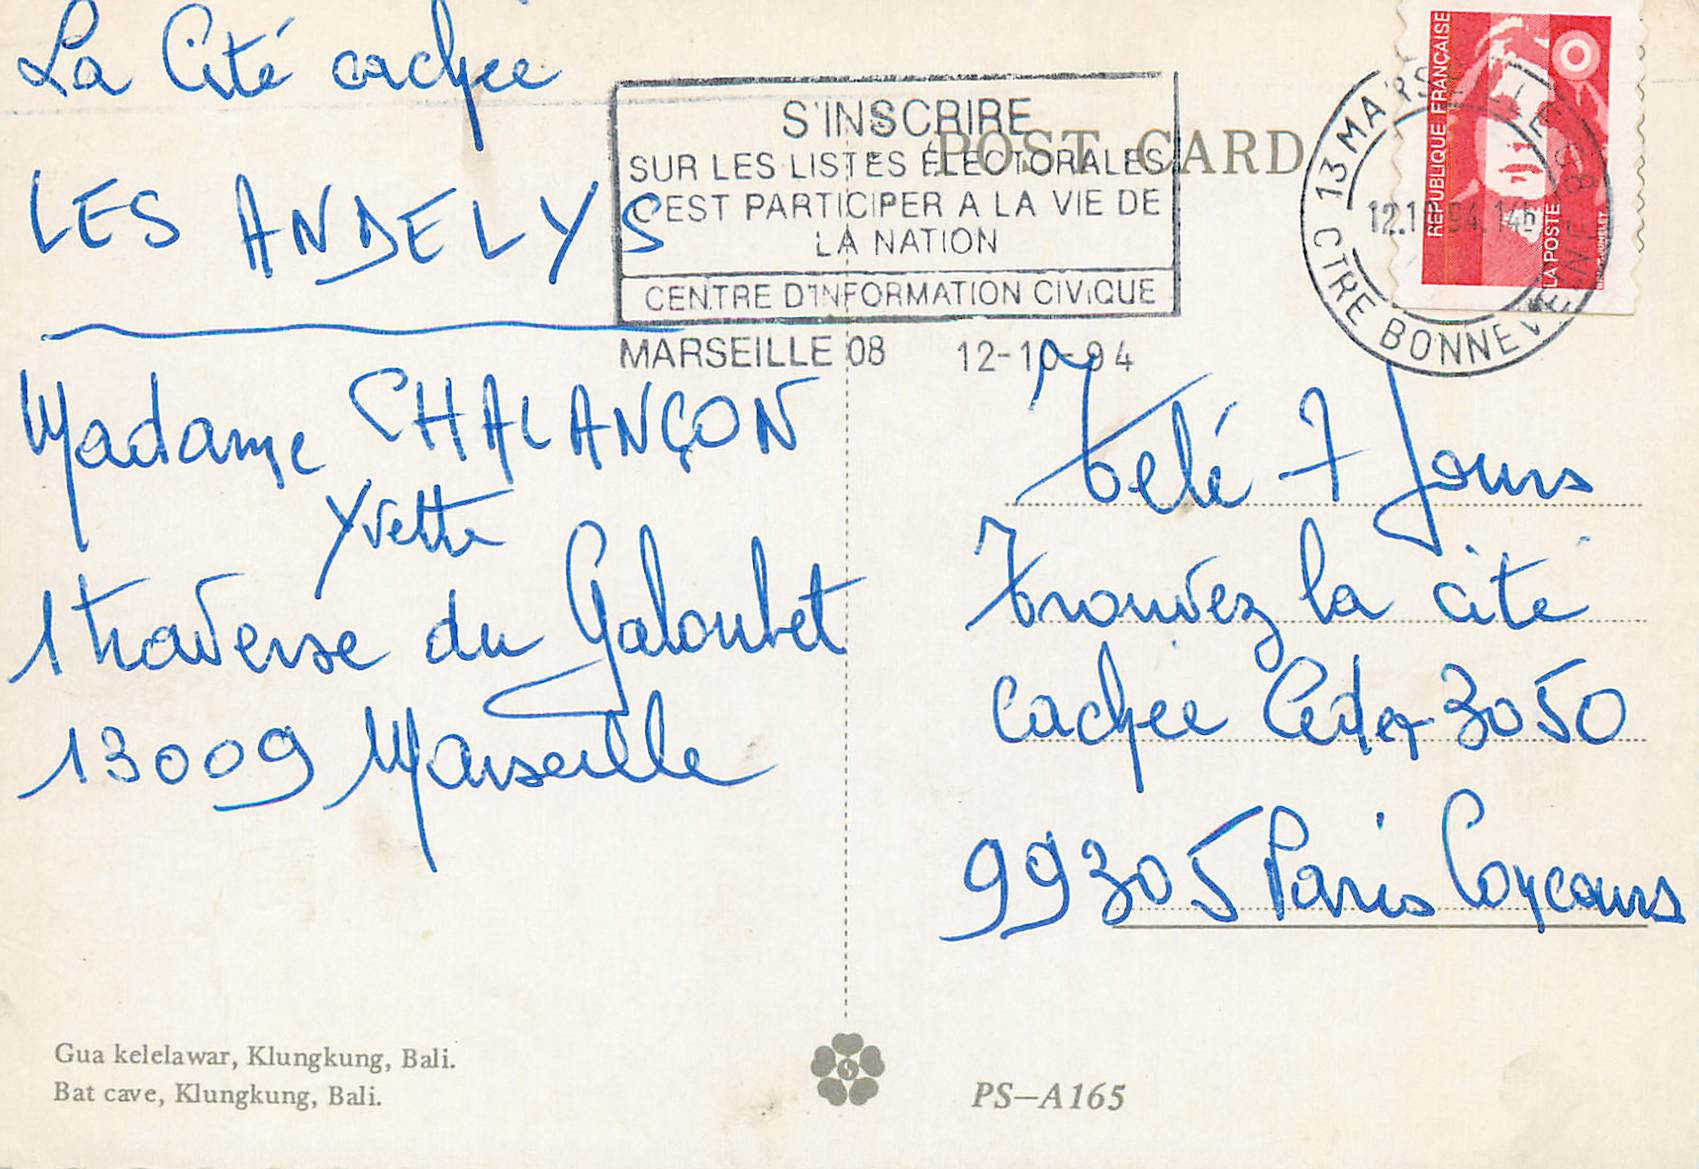 La Cité cachée
LES ANDELYS
Madame CHALANÇON
Yvette
1 traverse du Galoubet
13009 Marseille
S'INSCRIRE
SUR LES LISTES ÉLECTORALES
C'EST PARTICIPER A LA VIE DE
LA NATION
CENTRE D'INFORMATION CIVIQUE
MARSEILLE 08 12-10-94
POST CARD
13 MARSEILLE 08
12.10.94.14h
CTRE BONNEVEINE
REPUBLIQUE FRANÇAISE
LA POSTE
Télé 7 Jours
Trouvez la cité
cachée Cedex 3050
99305 Paris Concours
Gua kelelawar, Klungkung, Bali.
Bat cave, Klungkung, Bali.
PS—A165